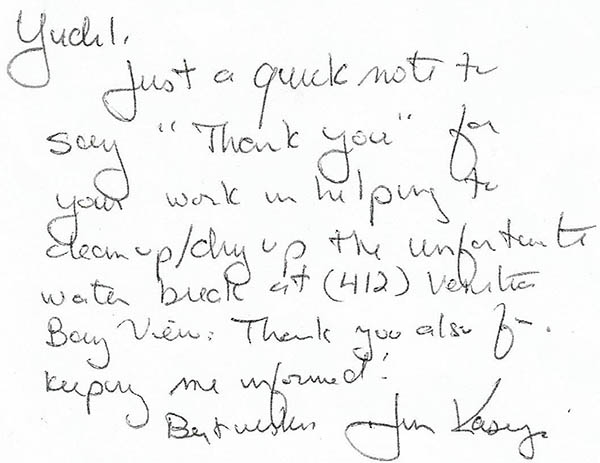 Yudil,
Just a quick note to
say "Thank you" for
your work in helping to
clean up/dry up the unfortunate
water break at (412)
Bay View. Thank you also for
keeping me informed!
Best wishes Jim